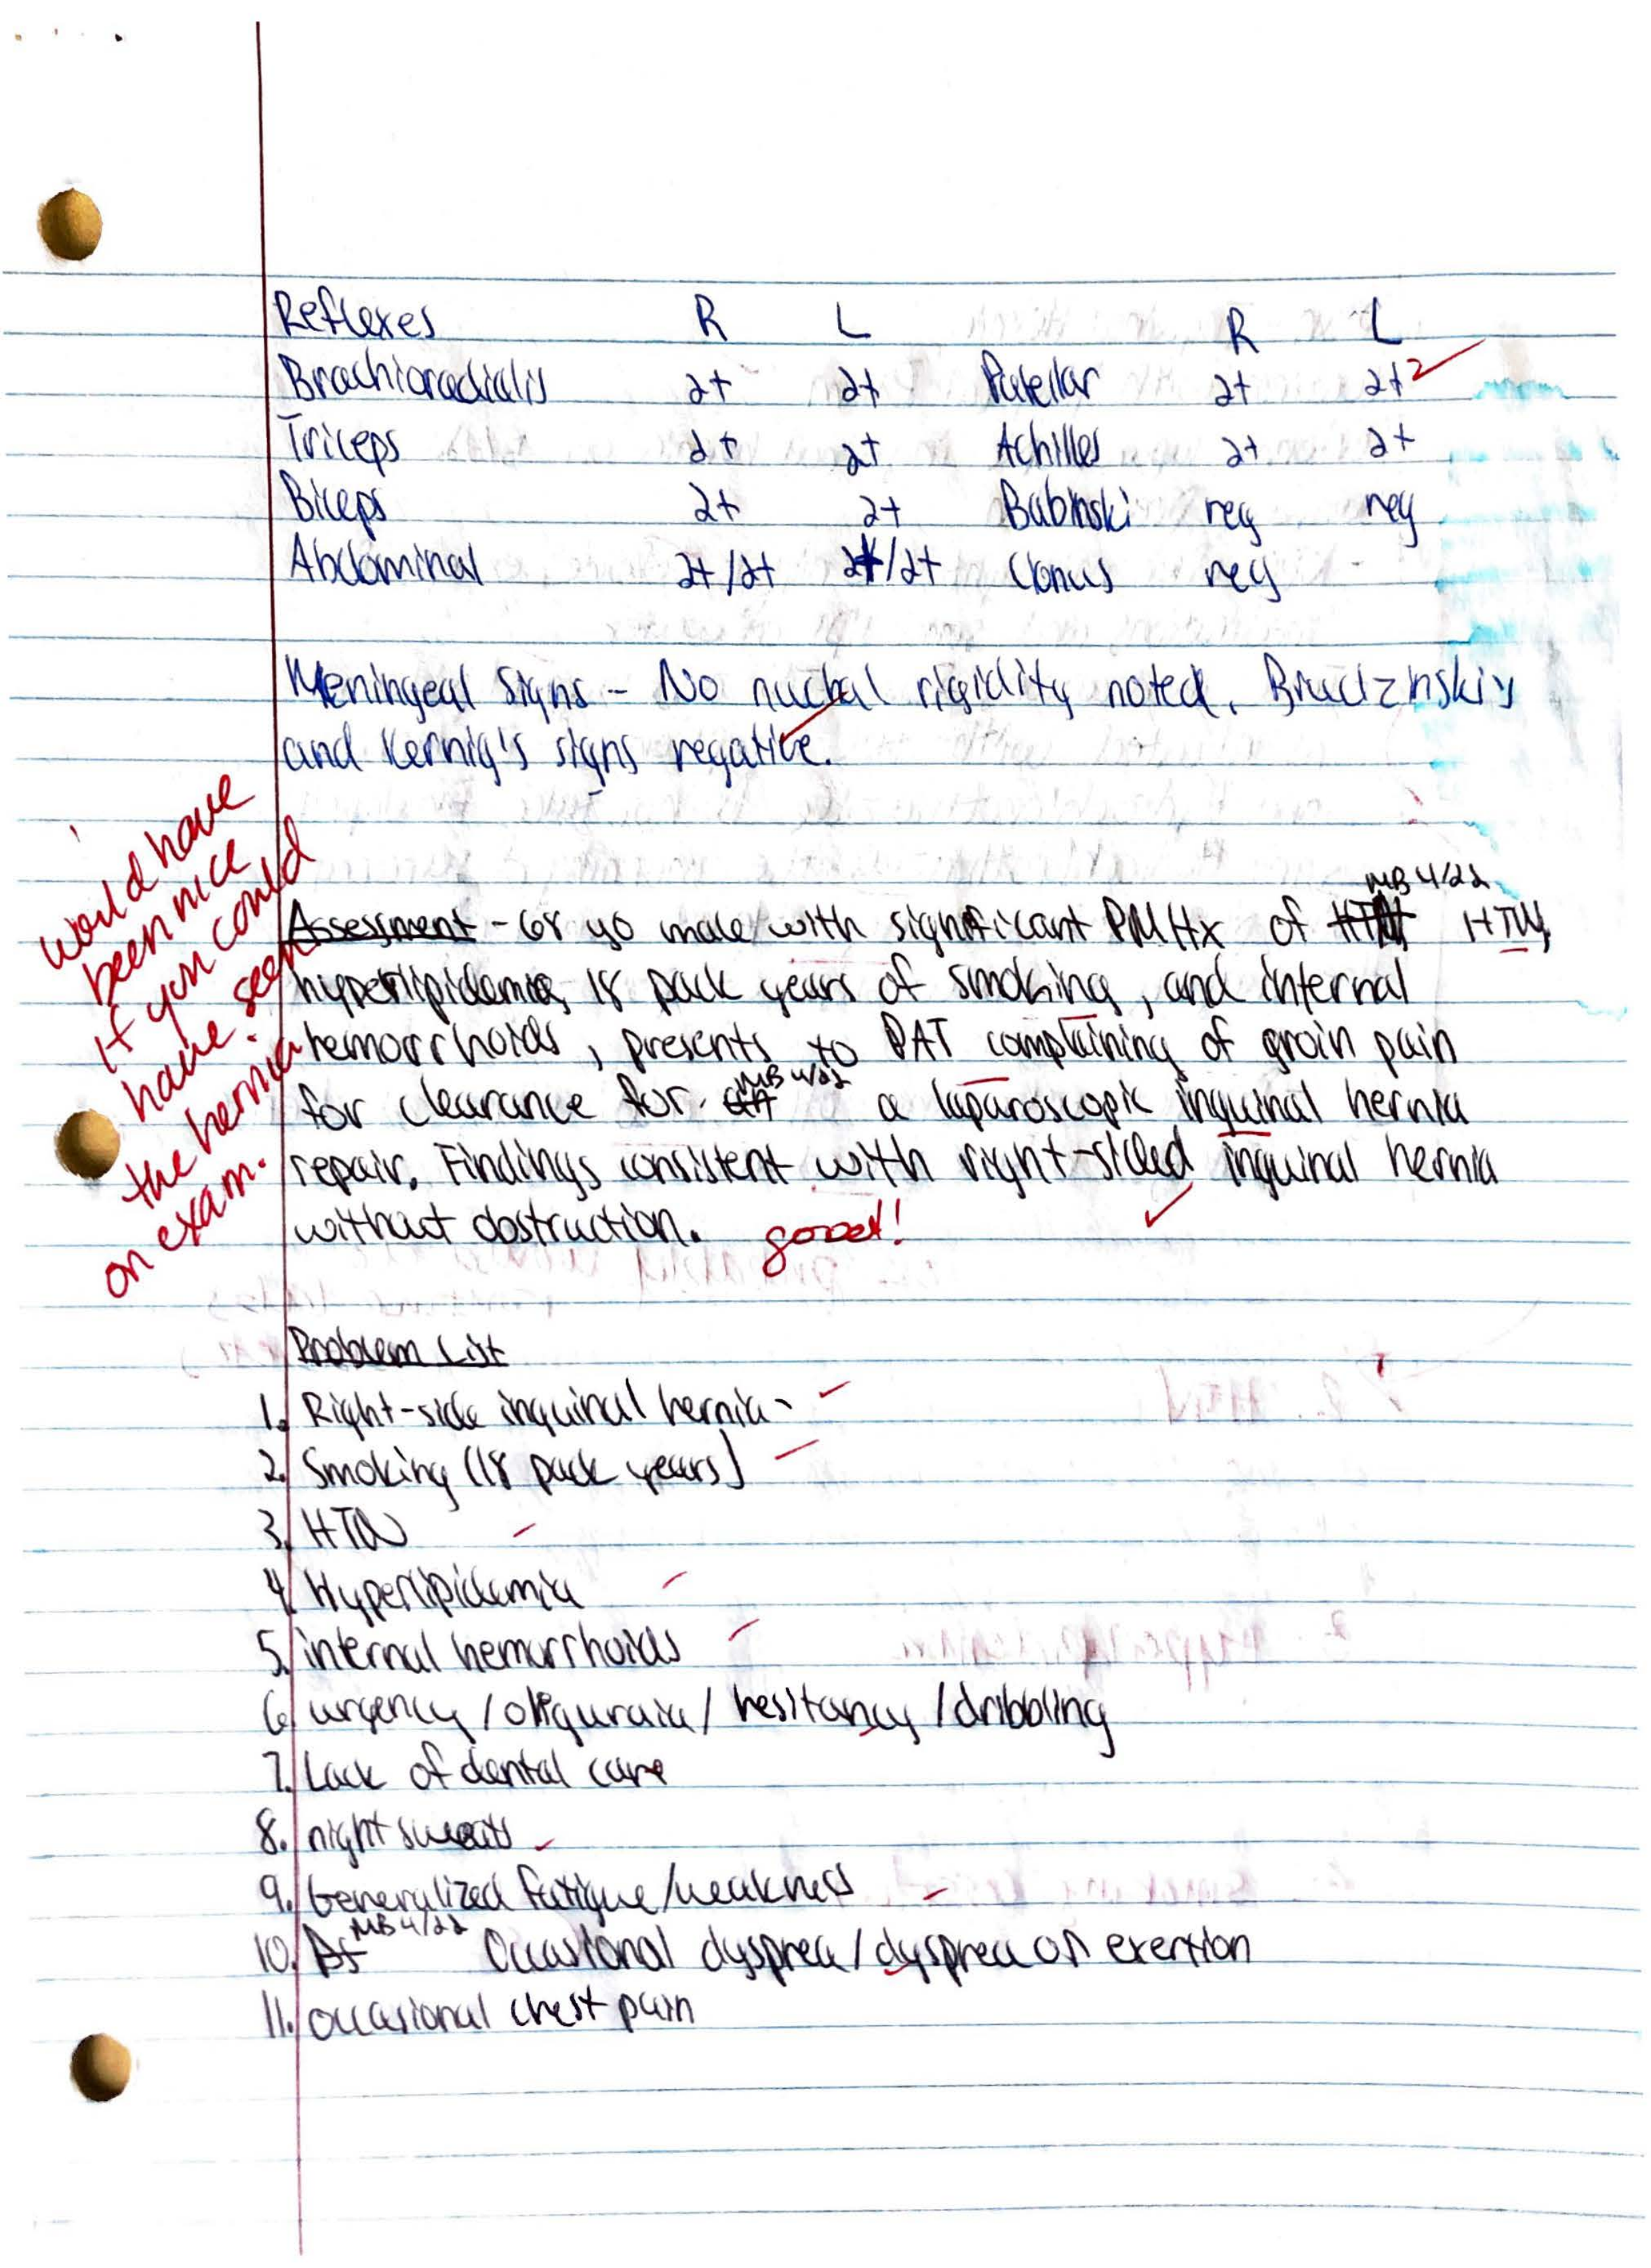 Reflexes R L R L
Brachioradialis 2+ 2+ Patellar 2+ 2+2
Triceps 2+ 2+ Achilles 2+ 2+
Biceps 2+ 2+ Babinski neg neg
Abdominal 2+/2+ 2+/2+ Clonus neg -
Meningeal Signs - No nuchal rigidity noted. Brudzinski's
and Kernig's signs negative.
would have
been nice
if you could
have seen
the hernia
on exam.
MB 4/22
Assessment - 68 yo male with significant PMHx of HTN HTN,
hyperlipidemia, 18 pack years of smoking, and internal
hemorrhoids, presents to PAT complaining of groin pain
MB 4/22
for clearance for a laparoscopic inguinal hernia
repair. Findings consistent with right-sided inguinal hernia
without obstruction. good!
Problem List
1. Right-side inguinal hernia
2. Smoking (18 pack years)
3. HTN
4. Hyperlipidemia
5. internal hemorrhoids
6. urgency/oliguraia/hesitancy/dribbling
7. Lack of dental care
8. night sweats
9. Generalized fatigue/weakness
MB 4/22
10. Occasional dyspnea/dyspnea on exertion
11. occasional chest pain